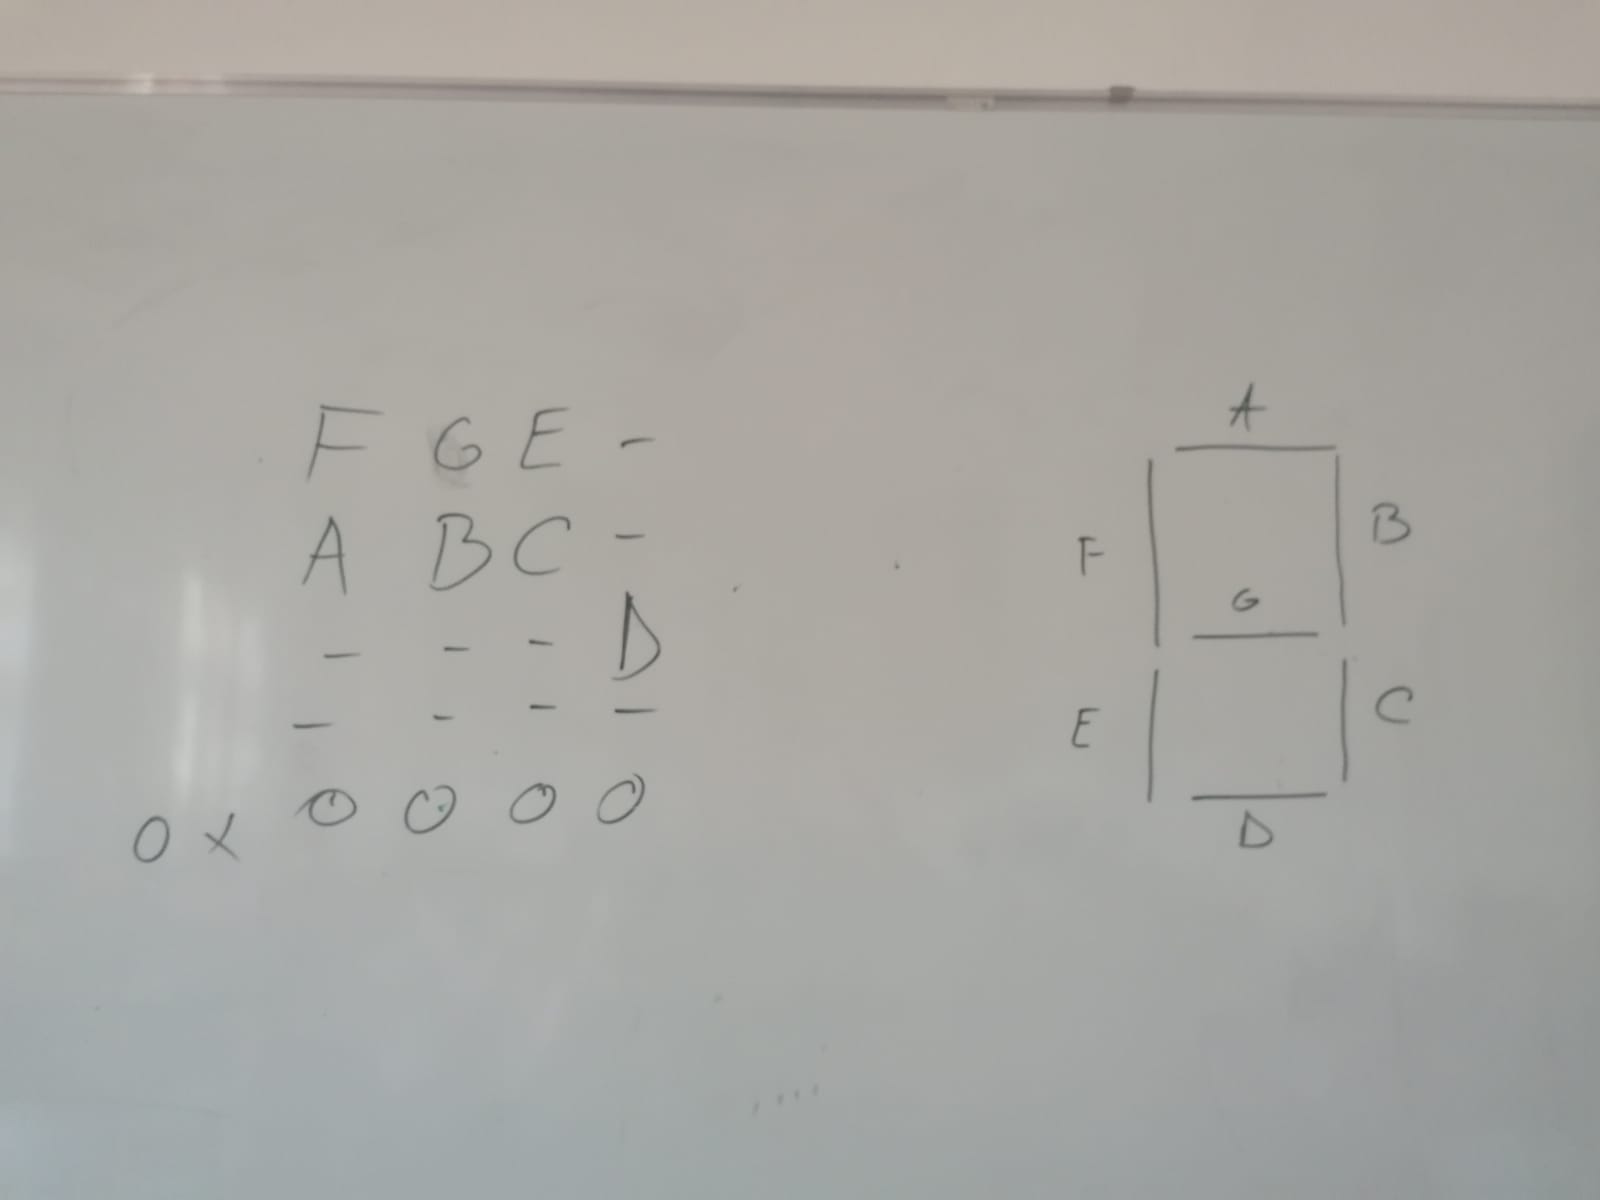 F G E -
A B C -
- - - D
- - - -
0x 0 0 0 0
A
F B
G
E C
D